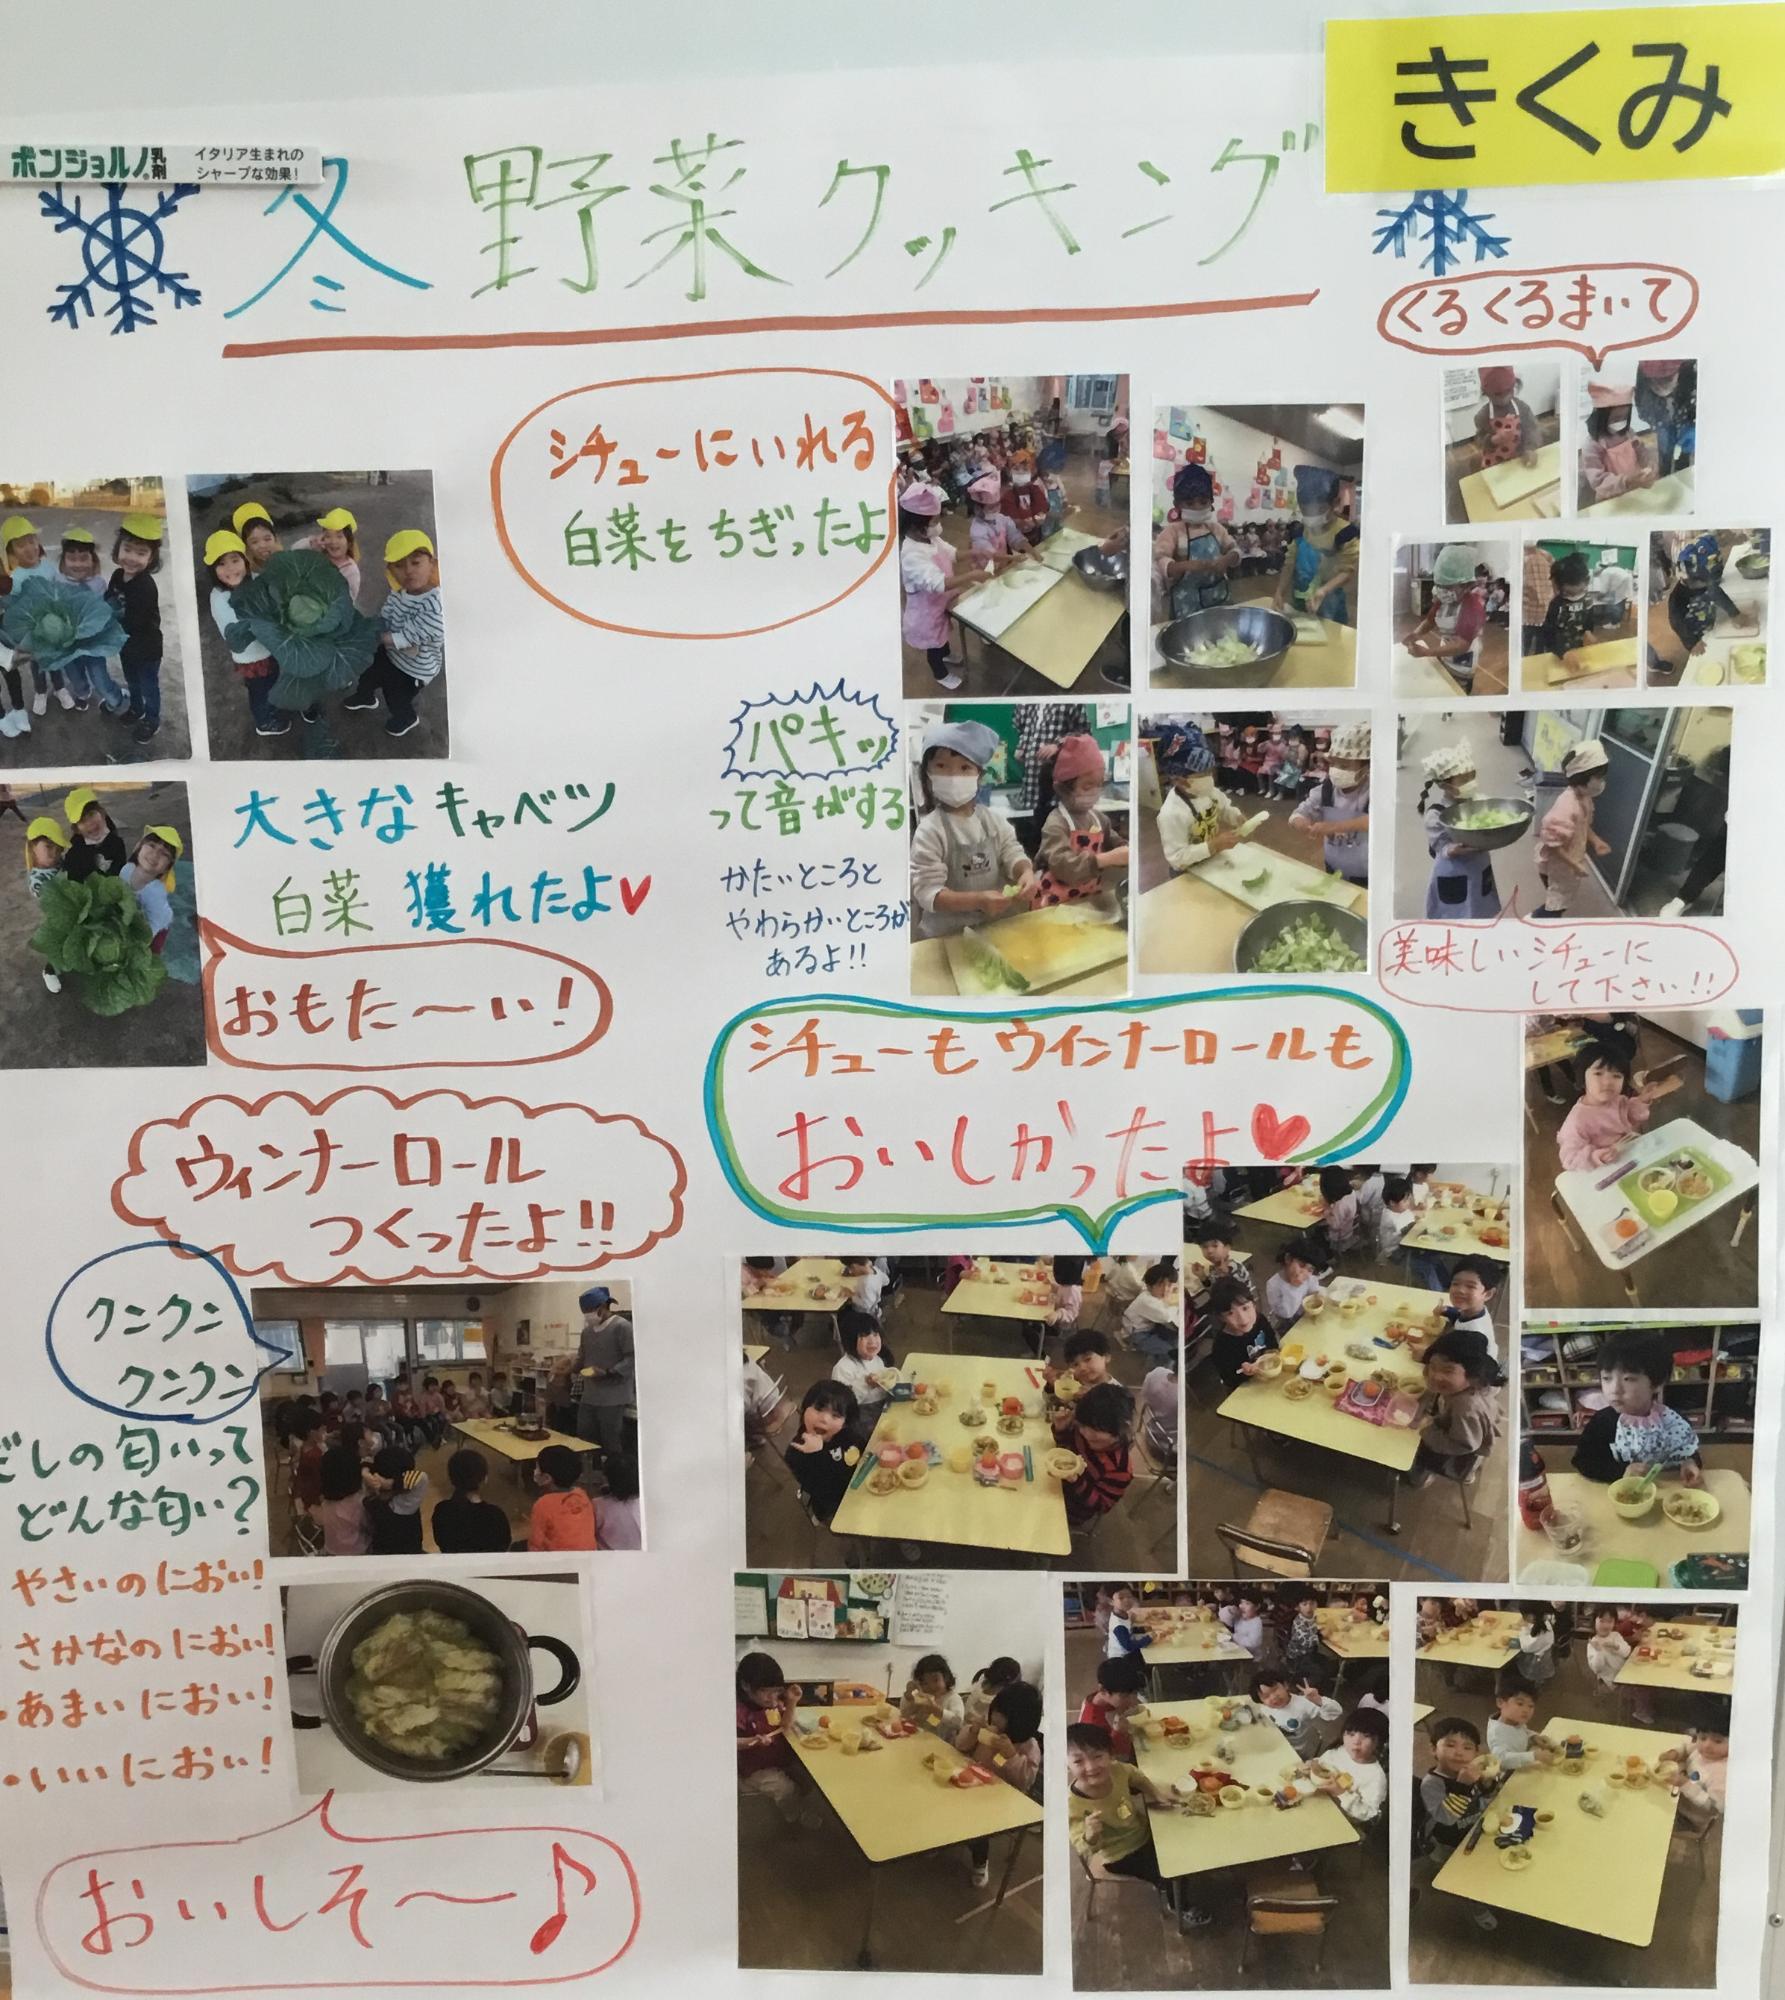 きくみ
ボンジョルノ乳剤
イタリア生まれの
シャープな効果!
冬野菜クッキング
くるくるまいて
シチューにいれる
白菜をちぎったよ
パキッ
って音がする
かたいところと
やわらかいところが
あるよ!!
美味しいシチューに
して下さい!!
大きなキャベツ
白菜 獲れたよ♥
おもた〜い!
シチューもウインナーロールも
おいしかったよ♥
ウィンナーロール
つくったよ!!
クンクン
クンクン
だしの匂いって
どんな匂い?
やさいのにおい!
・さかなのにおい!
・あまいにおい!
・いいにおい!
おいしそ〜♪